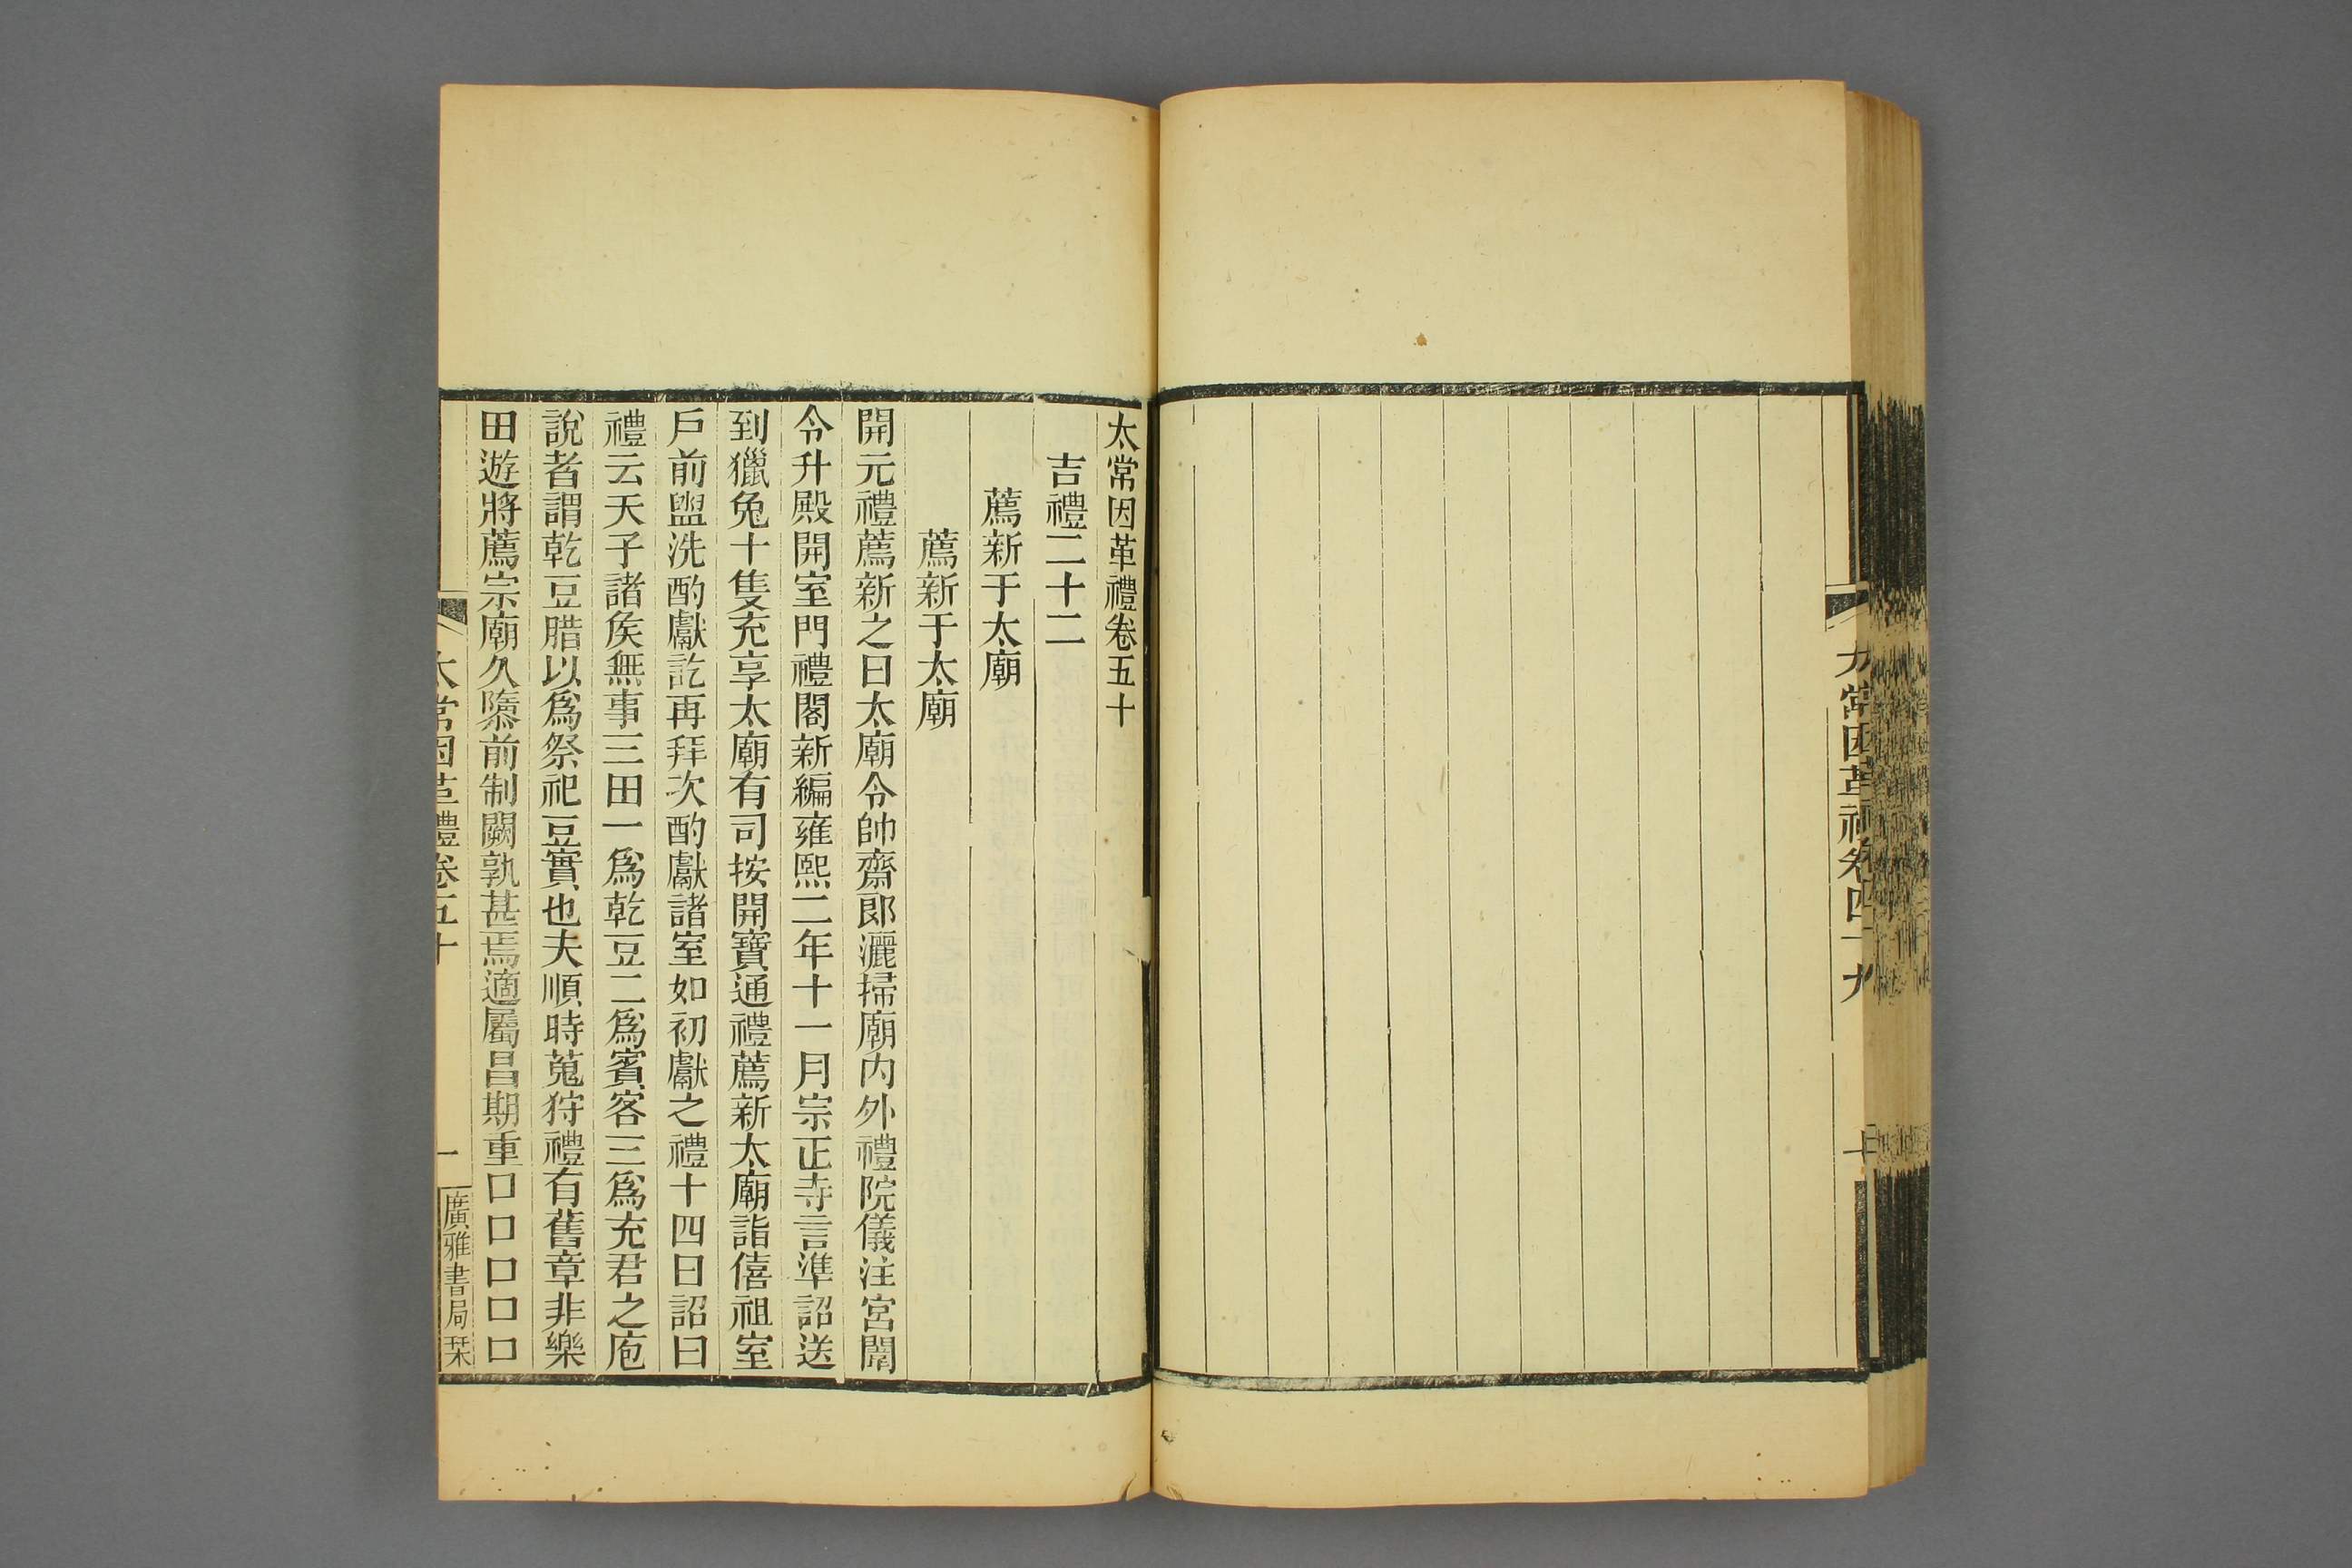 太常因革禮卷四十九
十
太常因革禮卷五十
吉禮二十二
薦新于太廟
薦新于太廟
開元禮薦新之日太廟令帥齋郎灑掃廟內外禮院儀注宮闈
令升殿開室門禮閣新編雍熙二年十一月宗正寺言準詔送
到獵兔十隻充享太廟有司按開寶通禮薦新太廟詣僖祖室
戶前盥洗酌獻訖再拜次酌獻諸室如初獻之禮十四日詔曰
禮云天子諸矦無事三田一爲乾豆二爲賓客三爲充君之庖
說者謂乾豆腊以爲祭祀豆實也夫順時蒐狩禮有舊章非樂
田遊將薦宗廟久隳前制闕孰甚焉適屬昌期重口口口口口
太常因革禮卷五十
一
廣雅書局栞